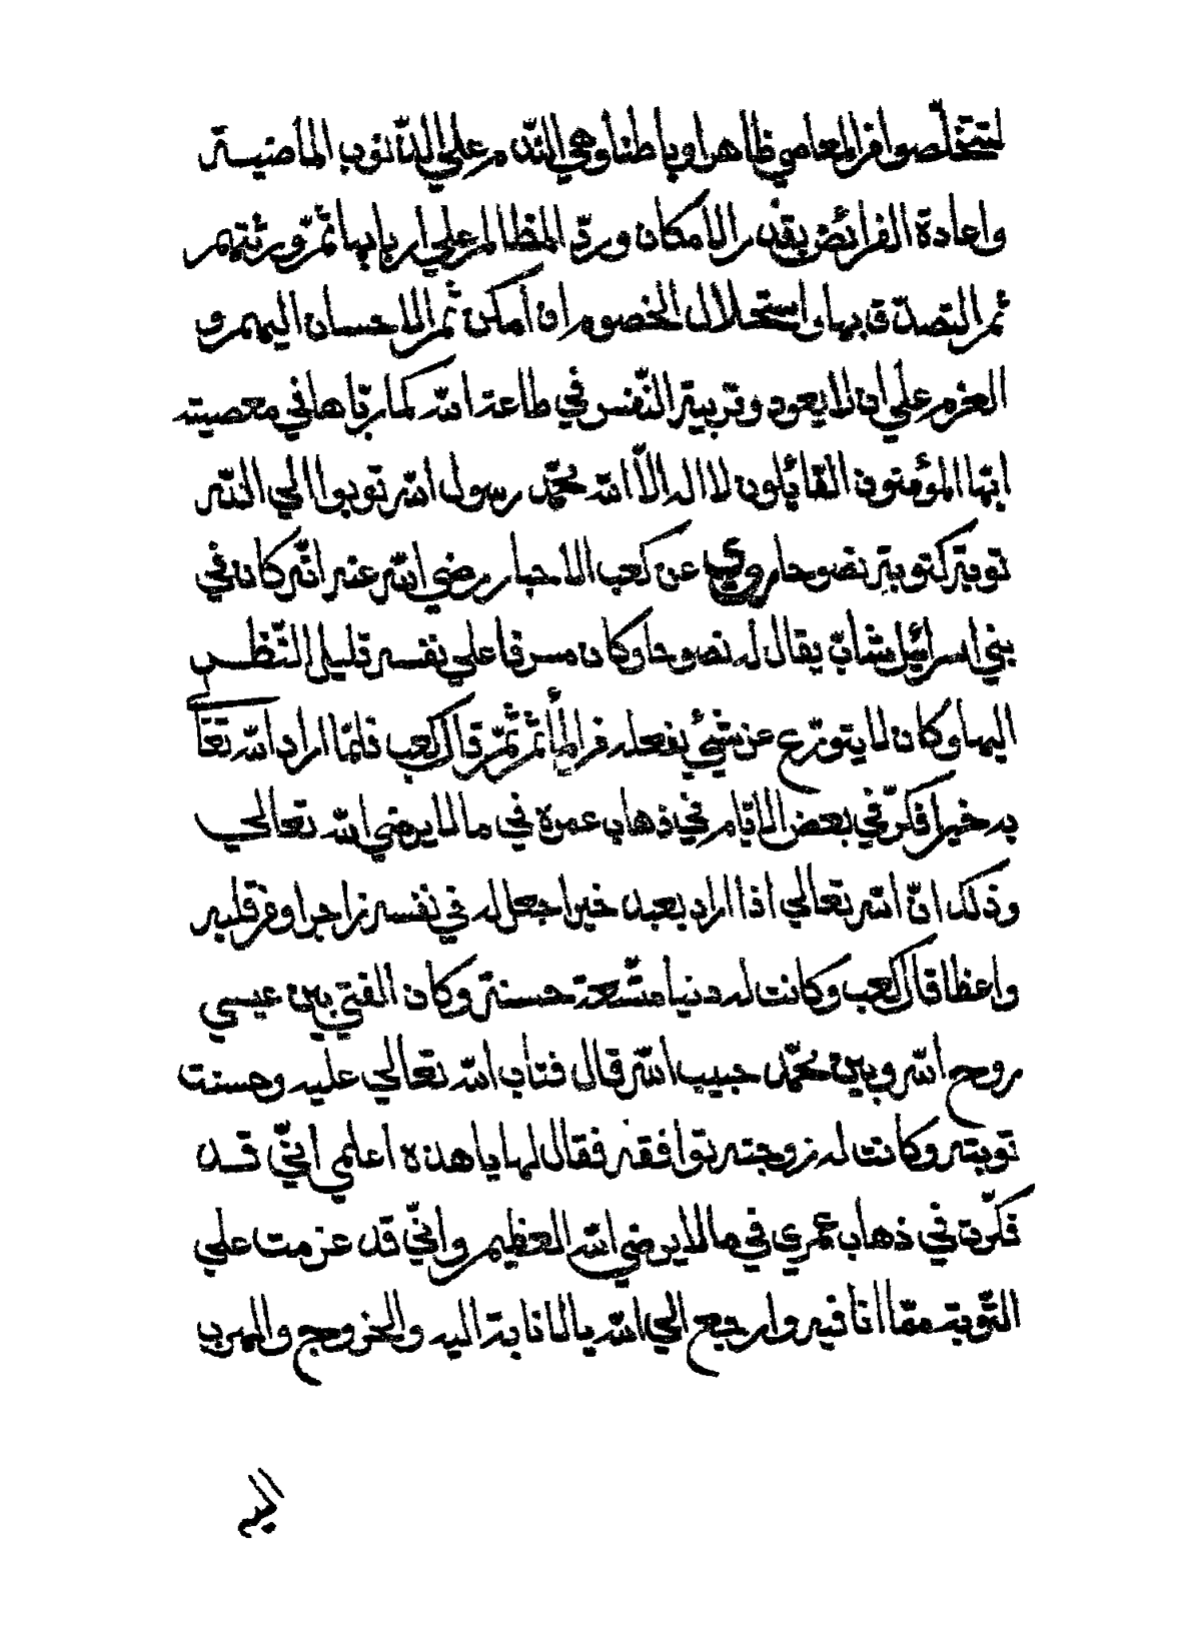 لتتخلّصوا من المعاصي ظاهرا وباطنا وهي الندم علي الذّنوب الماضية
واعادة الفرائض بقدر الامكان وردّ المظالم علي اربابها ثمّ ورثتهم
ثم التصدّق بها واستحلال الخصوم ان أمكن ثم الاحسان اليهم و
العزم علي ان لا يعود وتربية النّفس في طاعة الله كما ربّاها في معصيته
ايّها المؤمنون القائلون لا اله الاّ الله محمّد رسول الله توبوا الي الله
توبة كتوبة نصوحا روي عن كعب الاحبار رضي الله عنه انّه كان في
بني اسرائيل شابّ يقال له نصوحا وكان مسرفا علي نفسه قليل النّظر
اليها وكان لا يتورّع عن شيئ يفعله من المأثم ثمّ قال كعب فلمّا اراد الله تعا
به خيرا فكّر في بعض الايّام في ذهاب عمره في ما لا يرضي الله تعالي
وذلك انّ الله تعالي اذا اراد بعبد خيرا جعل له في نفسه زاجرا ومن قلبه
واعظا قال كعب وكانت له دنيا متّسعة حسنة وكان الفتي بين عيسي
روح الله وبين محمّد حبيب الله قال فتاب الله تعالي عليه وحسنت
توبته وكانت له زوجة توافقه فقال لها يا هذه اعلمي انّي قد
فكّرت في ذهاب عمري في ما لا يرضي الله العظيم وانّي قد عزمت علي
التّوبة ممّا انا فيه وارجع الي الله بالانابة اليه والخروج والهرب
اليه